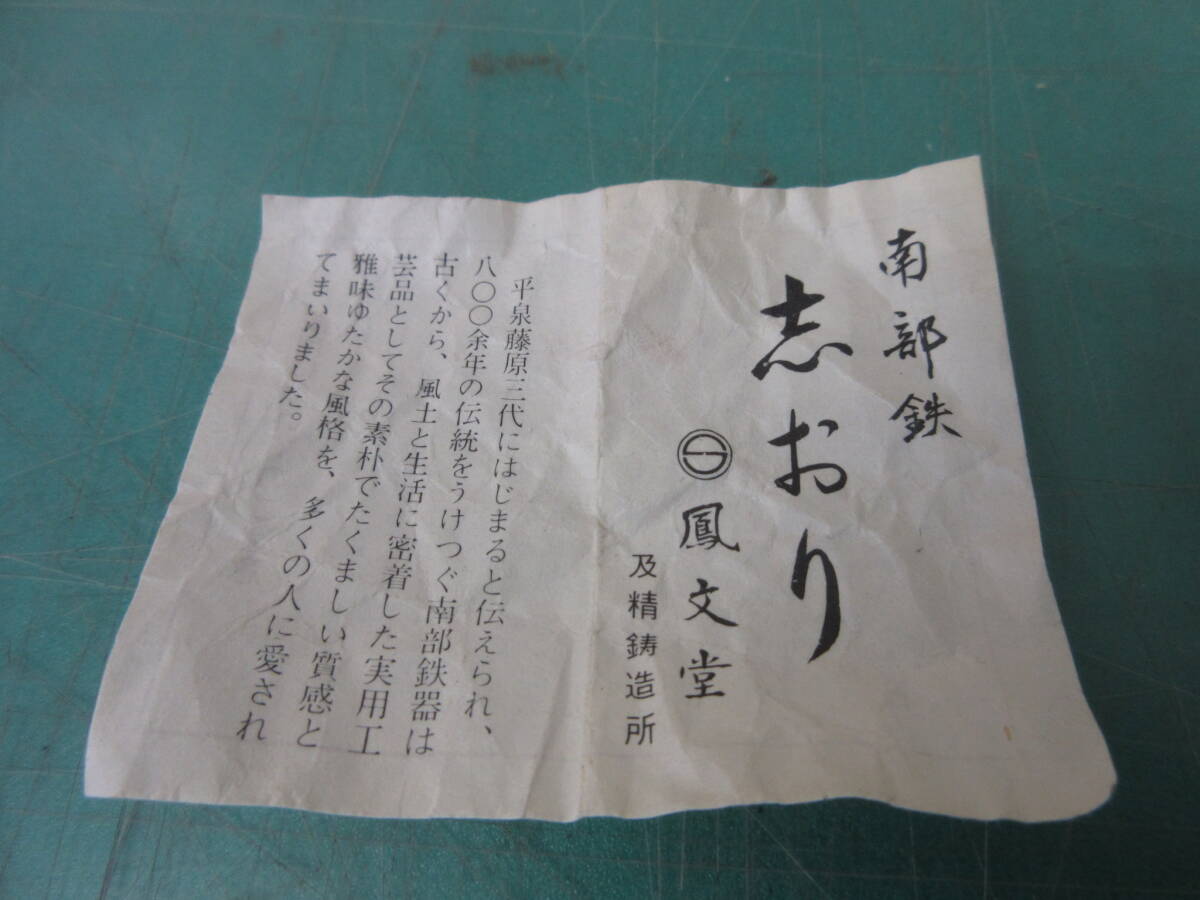 南部鉄
志おり
鳳文堂
及精鋳造所
平泉藤原三代にはじまると伝えられ、
八〇〇余年の伝統をうけつぐ南部鉄器は
古くから、風土と生活に密着した実用工
芸品としてその素朴でたくましい質感と
雅味ゆたかな風格を、多くの人に愛され
てまいりました。